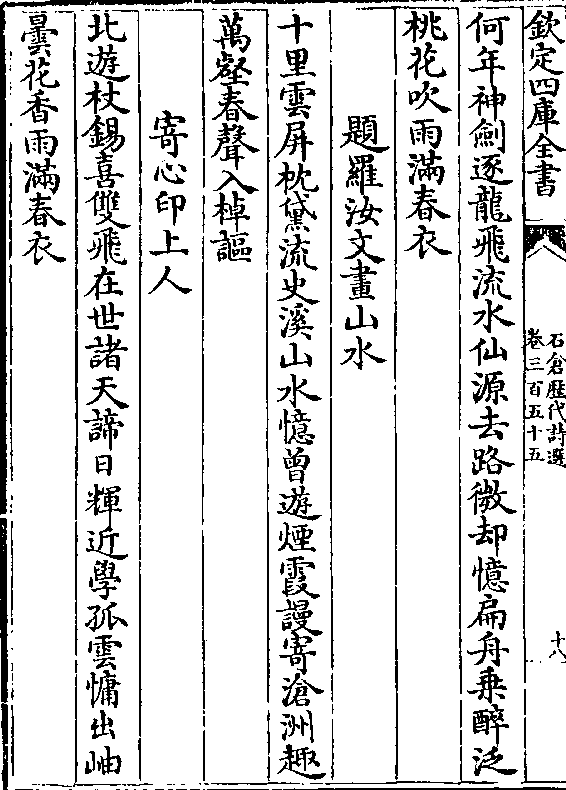 欽定四庫全書
石倉歷代詩選
卷三百五十五
十八
何年神劍逐龍飛流水仙源去路微却憶扁舟乗醉泛
桃花吹雨滿春衣
題羅汝文畫山水
十里雲屏枕黛流史溪山水憶曽遊煙霞謾寄滄洲趣
萬壑春聲入棹謳
寄心印上人
北遊杖錫喜雙飛在世諸天諦日輝近學孤雲慵出岫
曇花香雨滿春衣